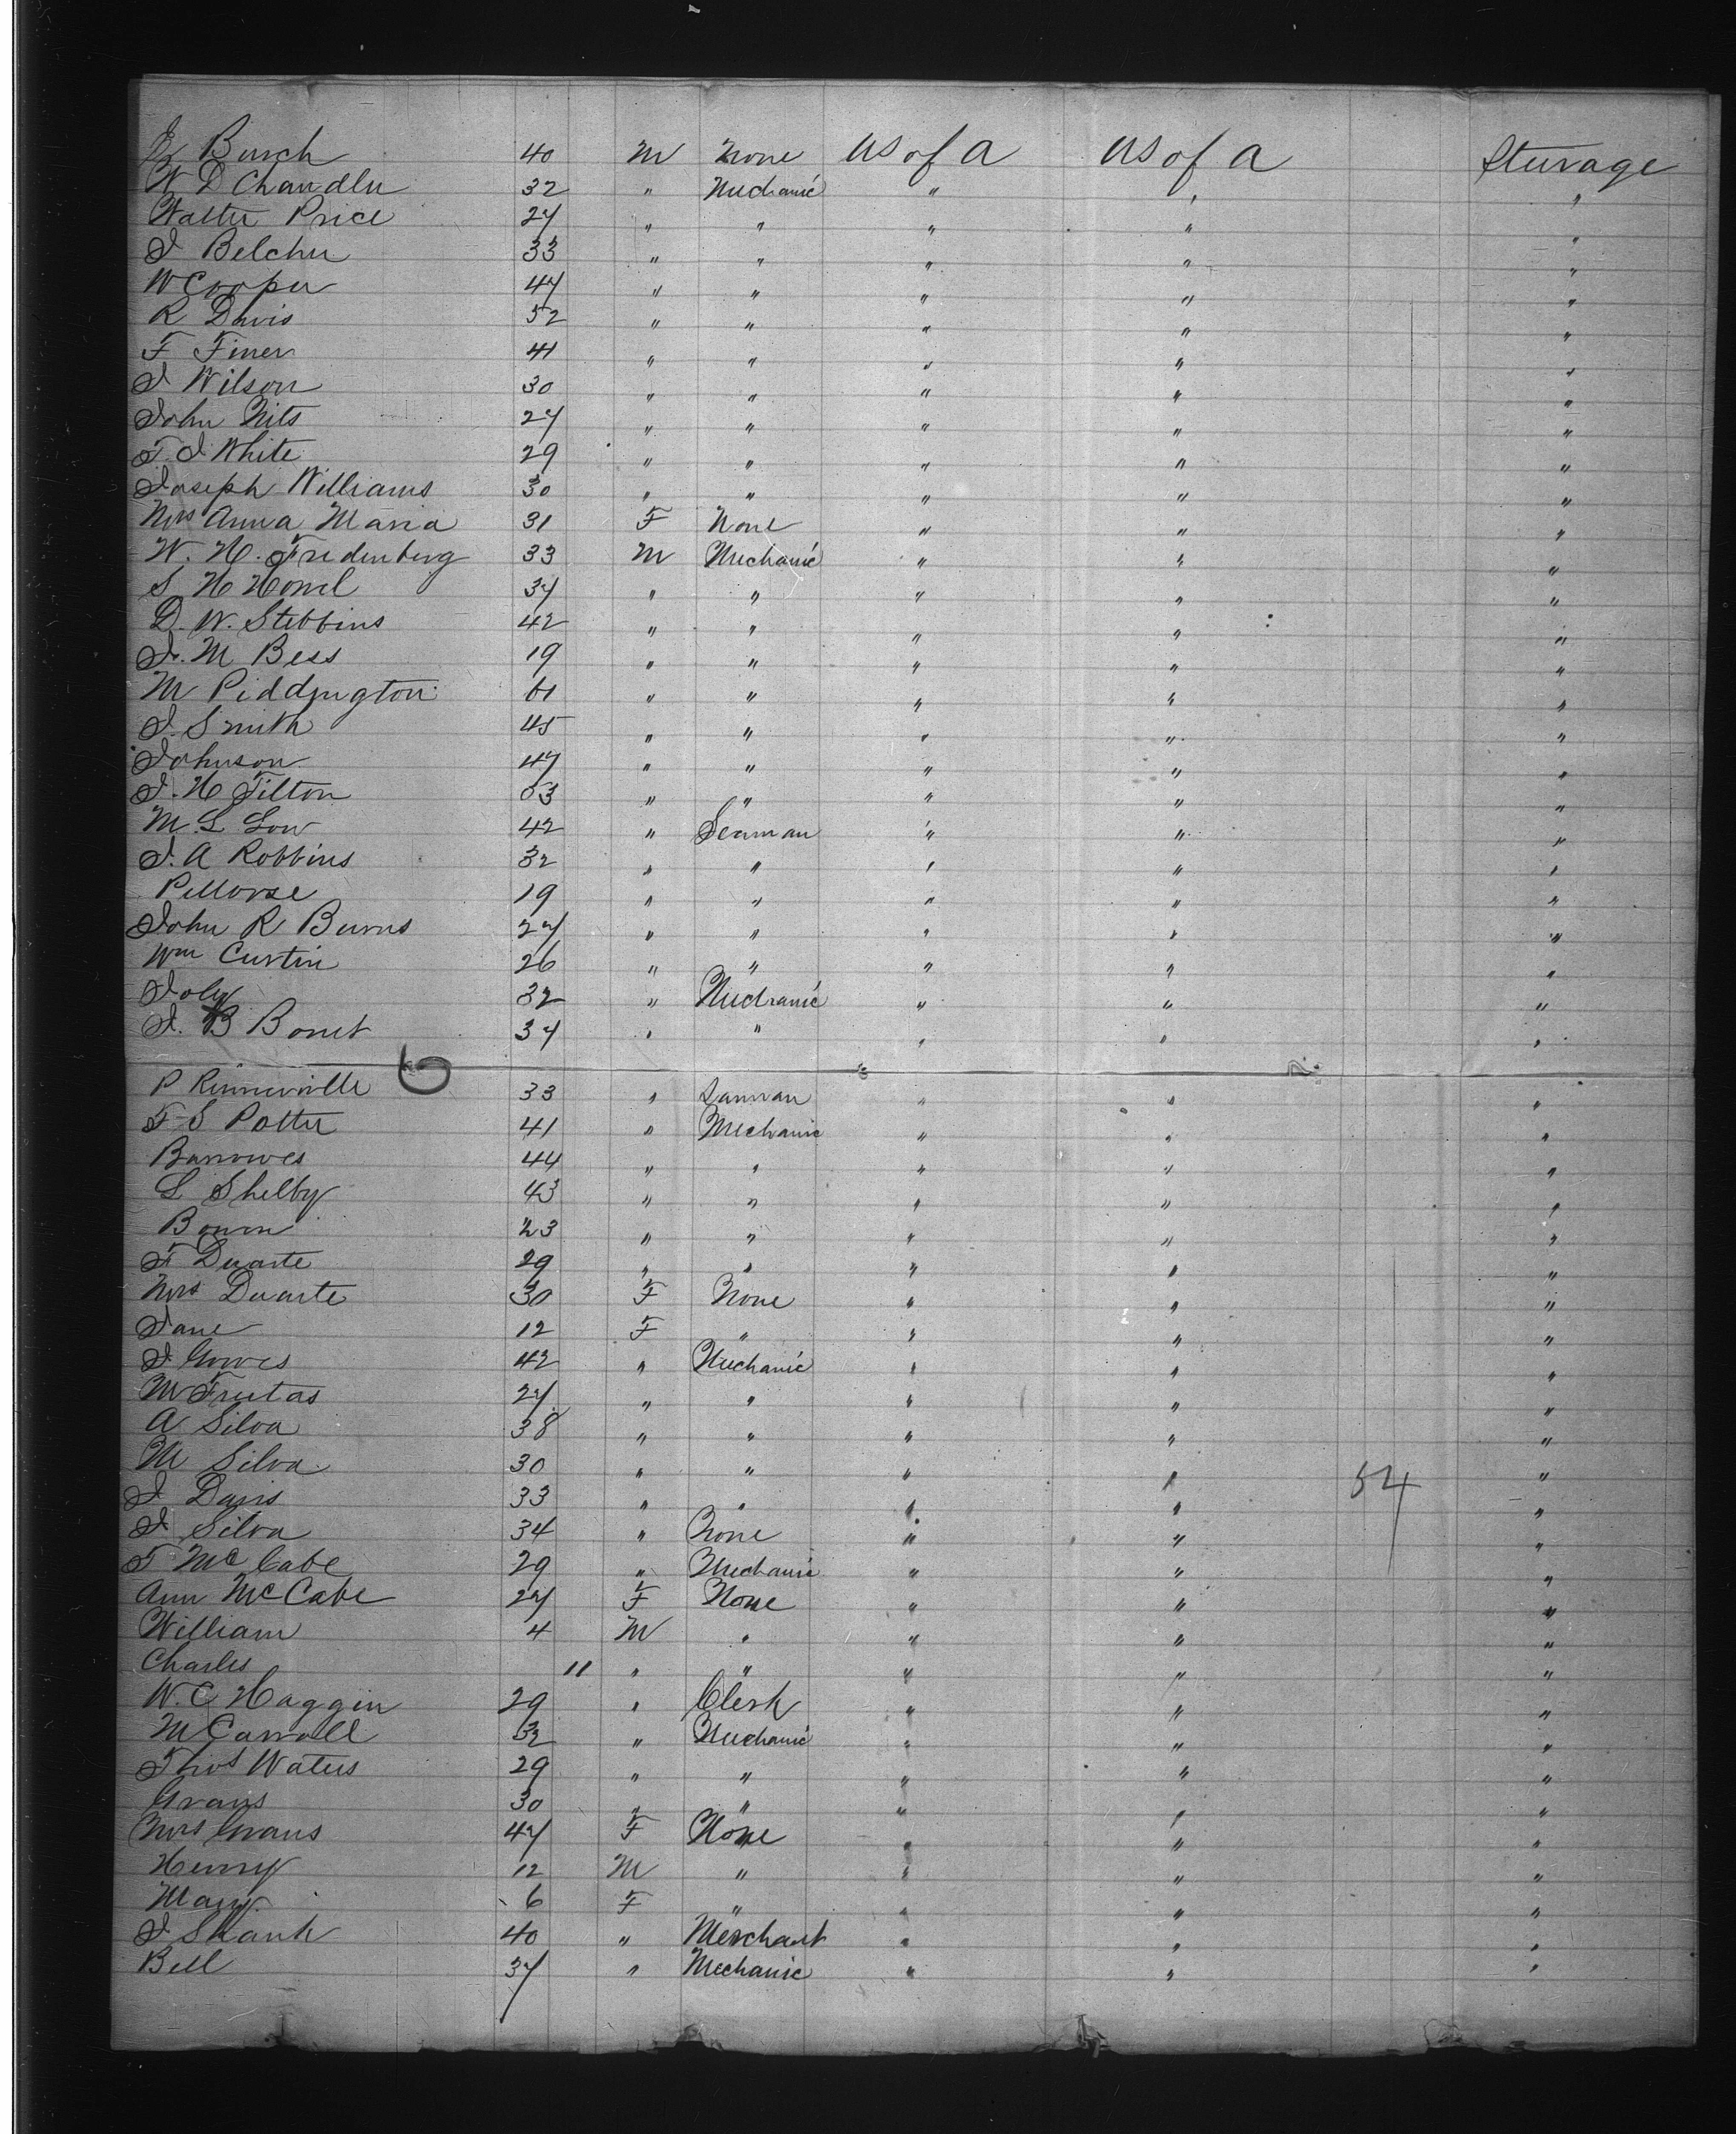 J Burch 40 M None US of A US of A Sturage
W D Chandler 32 " Mechanic " " "
Walter Price 27 " " " " "
J Belcher 33 " " " " "
W Cooper 47 " " " " "
R Davis 52 " " " " "
F Finer 41 " " " " "
J Wilson 30 " " " " "
John Nits 27 " " " " "
F. J White 29 " " " " "
Joseph Williams 30 " " " " "
Mrs Anna Maria 31 F None " " "
W. H. Fredenberg 33 M Mechanic " " "
S H Howel 37 " " " " "
D. W. Stebbins 42 " " " " "
J. M Bess 19 " " " " "
M Piddington 61 " " " " "
J. Smith 45 " " " " "
Johnson 47 " " " " "
J. H Tilton 53 " " " " "
M. L Low 42 " Seaman " " "
J. A Robbins 32 " " " " "
P Morse 19 " " " " "
John R Burns 27 " " " " "
Wm Curtin 26 " " " " "
Joly 32 " Mechanic " " "
J. B Bonet 37 " " " " "
6
P 33 " Seaman " " "
F S Potter 41 " Mechanic " " "
Barrowes 44 " " " " "
L Shelby 43 " " " " "
Bowen 23 " " " " "
F Duarte 29 " " " " "
Mrs Duarte 30 F None " " "
Jane 12 F " " " "
J. 42 " Mechanic " " "
M Freitas 27 " " " " "
A Silva 38 " " " " "
M Silva 30 " " " 54 "
J 33 " " " " "
J Silva 34 " None " " "
F McCabe 29 " Mechanic " " "
Ann McCabe 27 F None " " "
William 4 M " " " "
Charles 11 " " " " "
W. C Haggin 29 " Clerk " " "
M Carroll 32 " Mechanic " " "
Thos Waters 29 " " " " "
Grans 30 " " " " "
Mrs Grans 47 F None " " "
Henry 12 M " " " "
Mary 6 F " " " "
J Shank 40 " Merchant " " "
Bell 37 " Mechanic " " "